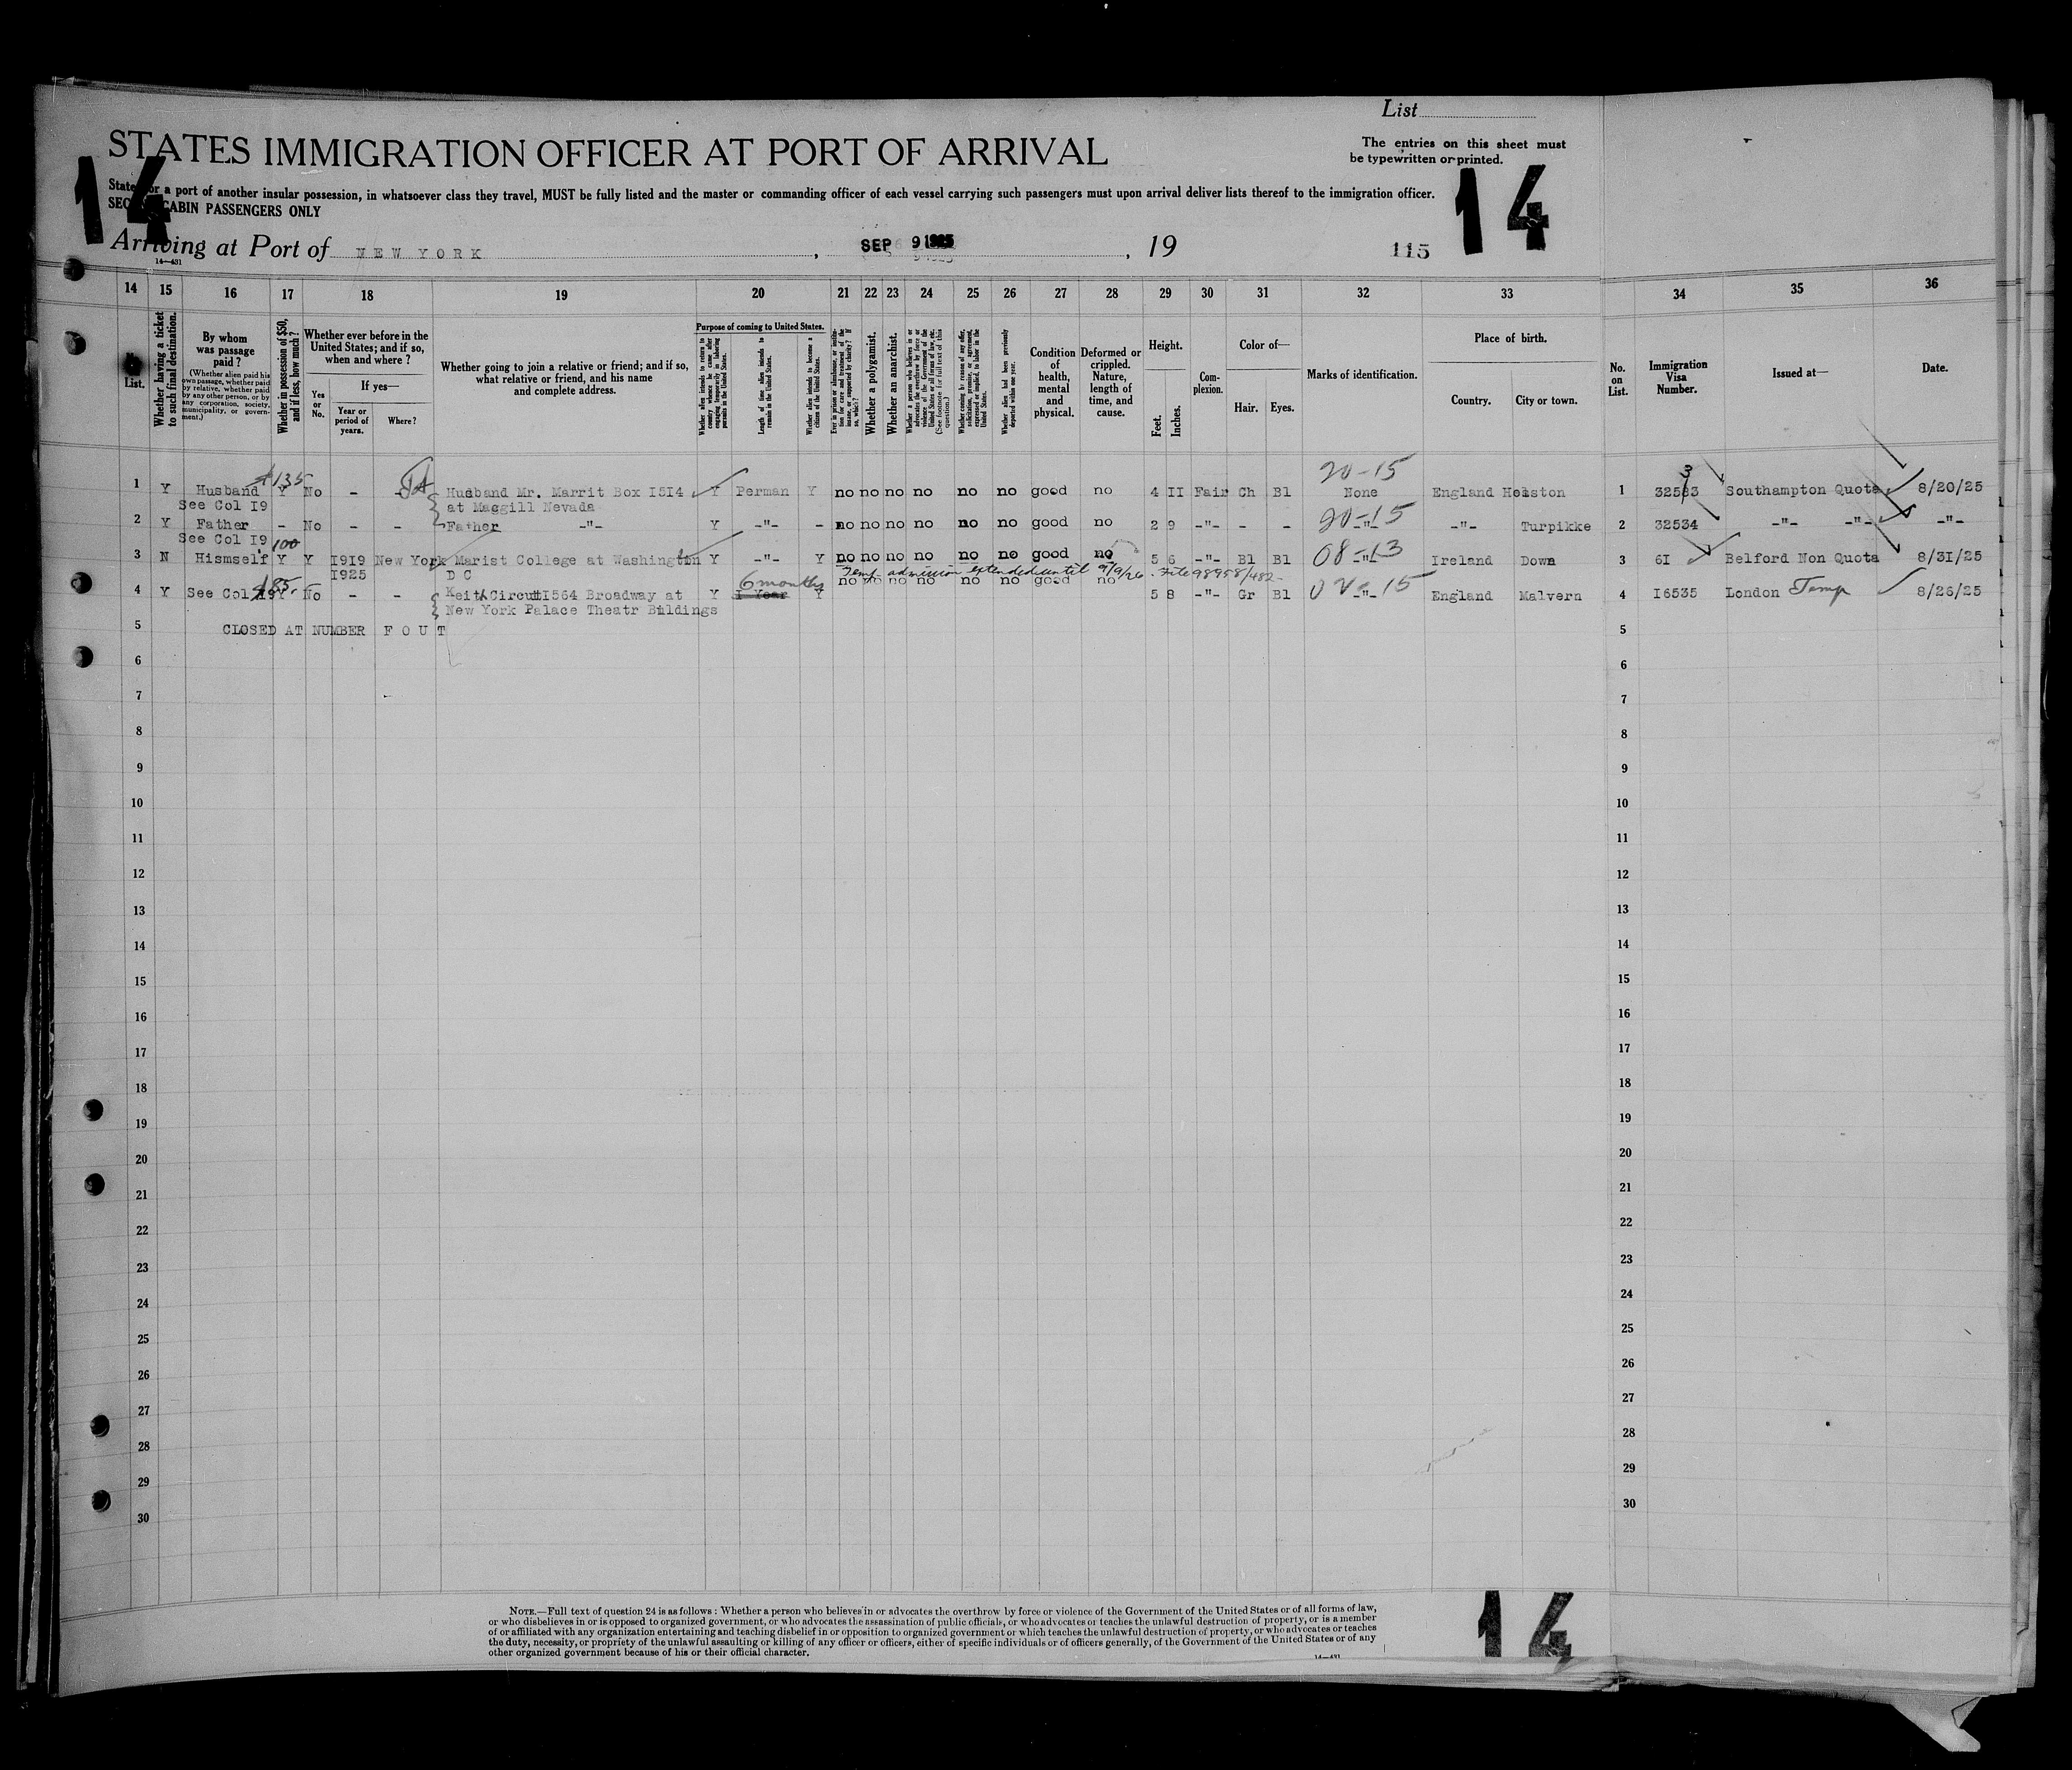 List
STATES IMMIGRATION OFFICER AT PORT OF ARRIVAL
The entries on this sheet must
be typewritten or printed.
14
14
States, or a port of another insular possession, in whatsoever class they travel, MUST be fully listed and the master or commanding officer of each vessel carrying such passengers must upon arrival deliver lists thereof to the immigration officer.
CABIN PASSENGERS ONLY
Arriving at Port of NEW YORK , SEP 9 1925 , 19 115
14—431
14 15 16 17 18 19 20 21 22 23 24 25 26 27 28 29 30 31 32 33 34 35 36
List.
Whether having a ticket to such final destination.
By whom was passage paid?
(Whether alien paid his own passage, whether paid by relative, whether paid by any other person, or by any corporation, society, municipality, or government.)
Whether in possession of $50, and if less, how much?
Whether ever before in the United States; and if so, when and where?
Yes or No.
If yes—
Year or period of years.
Where?
Whether going to join a relative or friend; and if so, what relative or friend, and his name and complete address.
Purpose of coming to United States.
Whether alien intends to return to country whence he came after engaging temporarily in laboring pursuits in the United States.
Length of time alien intends to remain in the United States.
Whether alien intends to become a citizen of the United States.
Ever in prison or almshouse, or institution for care and treatment of the insane, or supported by charity? If so, which?
Whether a polygamist.
Whether an anarchist.
(See footnote for full text of this question.)
Whether coming by reason of any offer, solicitation, promise, or agreement, expressed or implied, to labor in the United States.
Whether alien had been previously deported within one year.
Condition of health, mental and physical.
Deformed or crippled. Nature, length of time, and cause.
Height.
Feet.
Inches.
Complexion.
Color of—
Hair.
Eyes.
Marks of identification.
Place of birth.
Country.
City or town.
No. on List.
Immigration Visa Number.
Issued at—
Date.
20-15
$135
1 Y Husband Y No - - Husband Mr. Marrit Box I5I4 Y Perman Y no no no no no no good no 4 II Fair Ch Bl None England Helston 1 32533 Southampton Quota 8/20/25
See Col I9 at Macgill Nevada
2 Y Father - No - - Father -"- Y -"- - no no no no no no good no 2 9 -"- - - 20-15 -"- -"- Turpikke 2 32534 -"- -"- -"-
See Col I9
100
3 N Hismself Y Y I9I9 New York Marist College at Washington Y -"- Y no no no no no no good no 5 6 -"- Bl Bl 08-13 -"- Ireland Down 3 6I Belford Non Quota 8/31/25
I925 D C
Temp admission extended until 9/9/26. File 98958/482-
6 months
no no no no no no good no
$85.
4 Y See Col I9 Y No - - Keith Circuit I564 Broadway at Y I Year Y 5 8 -"- Gr Bl -"- England Malvern 4 I6535 London Temp 8/26/25
New York Palace Theatr Buldings
5 CLOSED AT NUMBER F O U T 5
6 6
7 7
8 8
9 9
10 10
11 11
12 12
13 13
14 14
15 15
16 16
17 17
18 18
19 19
20 20
21 21
22 22
23 23
24 24
25 25
26 26
27 27
28 28
29 29
30 30
NOTE.—Full text of question 24 is as follows: Whether a person who believes in or advocates the overthrow by force or violence of the Government of the United States or of all forms of law,
or who disbelieves in or is opposed to organized government, or who advocates the assassination of public officials, or who advocates or teaches the unlawful destruction of property, or is a member
of or affiliated with any organization entertaining and teaching disbelief in or opposition to organized government or which teaches the unlawful destruction of property, or who advocates or teaches
the duty, necessity, or propriety of the unlawful assaulting or killing of any officer or officers, either of specific individuals or of officers generally, of the Government of the United States or of any
other organized government because of his or their official character.
14—431
14